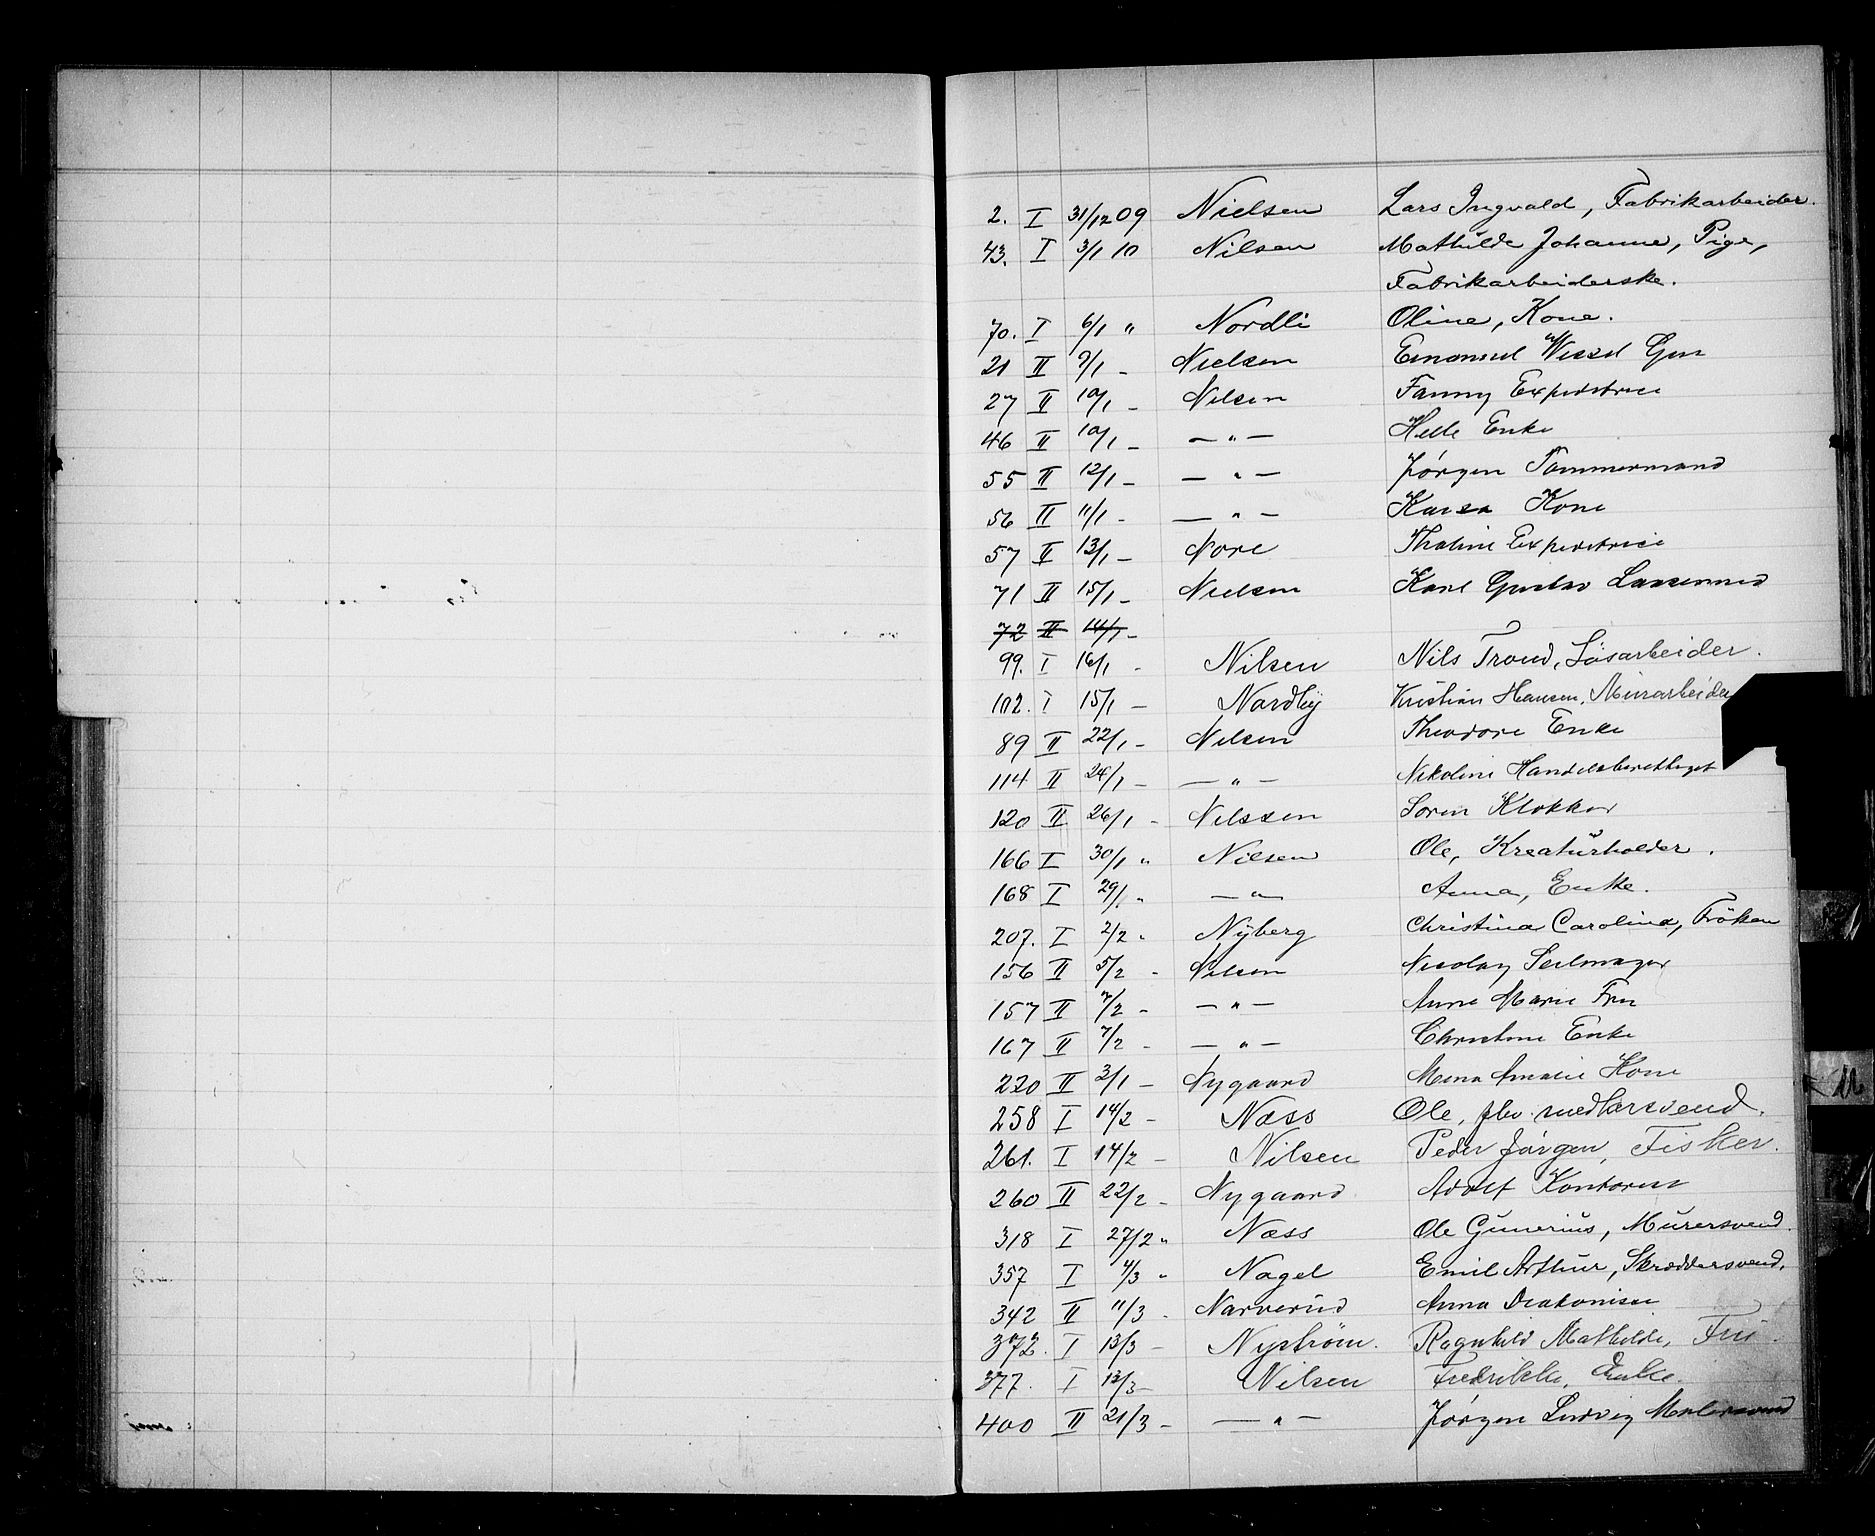 2. I 31/12 09 Nielsen Lars Ingvald, Fabrikarbeider.
43. I 3/1 10 Nilsen Mathilde Johanne, Pige,
Fabrikarbeiderske.
70. I 6/1 " Nordli Oline, Kone.
21 II 7/1 - Nielsen Emanuel Wessel
27 II 10/1 - Nilsen Fanny Expeditrice
46 II 10/1 - — " — Helle Enke
55 II 12/1 - — " — Jörgen Tømmermand
56 II 11/1 - — " — Kaisa Kone
57 II 13/1 - Nore Thaline Expeditrice
71 II 15/1 - Nielsen Karl Gustav
72 II 14/1 -
99. I 16/1 - Nilsen Nils Trond, Løsarbeider.
102. I 15/1 - Nordby Kristian Hansen, Murarbeider
89 II 22/1 - Nilsen Theodore Enke
114 II 24/1 - — " — Nikoline Handelsberettiget
120 II 26/1 - Nilssen Soren Klokker
166 I 30/1 " Nilsen Ole, Kreaturholder.
168 I 29/1 " — " — Anna, Enke.
207. I 2/2 " Nyberg Christina Carolina, Frøken
156 II 5/2 - Nilsen Nicolay Seilmager
157 II 7/2 - — " — Anne Marie Fru
167 II 7/2 - — " — Christine Enke
220 II 3/1 - Nygaard Mina Amalie Kone
258 I 14/2 - Næss Ole, fhv.
261. I 14/2 - Nilsen Peder Jørgen, Fisker.
260 II 22/2 - Nygaard Adolf Kontorist
318 I 27/2 " Næss Ole Gunerius, Murersvend.
357 I 4/3 " Nagel Emil Arthur, Skræddersvend.
342 II 11/3 - Narverud Anna Diakonisse
372. I 13/3 - Nystrøm. Ragnhild Mathilde, Fru.
377. I 13/3 - Nilsen Fredrikke, Enke.
400 II 21/3 - — " — Jørgen Ludvig Malersvend